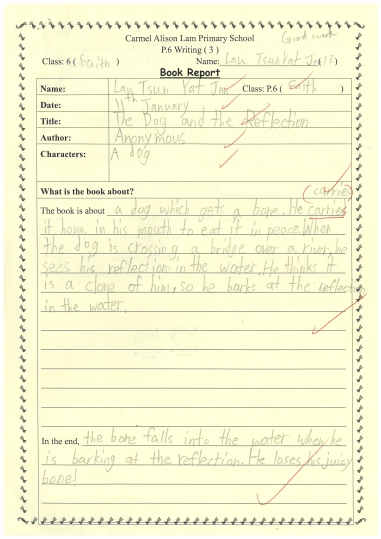 Carmel Alison Lam Primary School
Good work
P.6 Writing ( 3 )
Class: 6 ( Faith ) Name: Lau Tsun Yat Jon (13)
Book Report
Name: Lau Tsun Yat Jon Class: P.6 ( Faith )
Date: 11th January
Title: The Dog and the Reflection
Author: Anonymous
Characters: A dog
What is the book about? carries
The book is about a dog which gets a bone. He carries
it home in his mouth to eat it in peace. When
the dog is crossing a bridge over a river, he
sees his reflection in the water. He thinks it
is a clone of him, so he barks at the reflection
in the water.
In the end, the bone falls into the water when he
is barking at the reflection. He loses his juicy
bone!